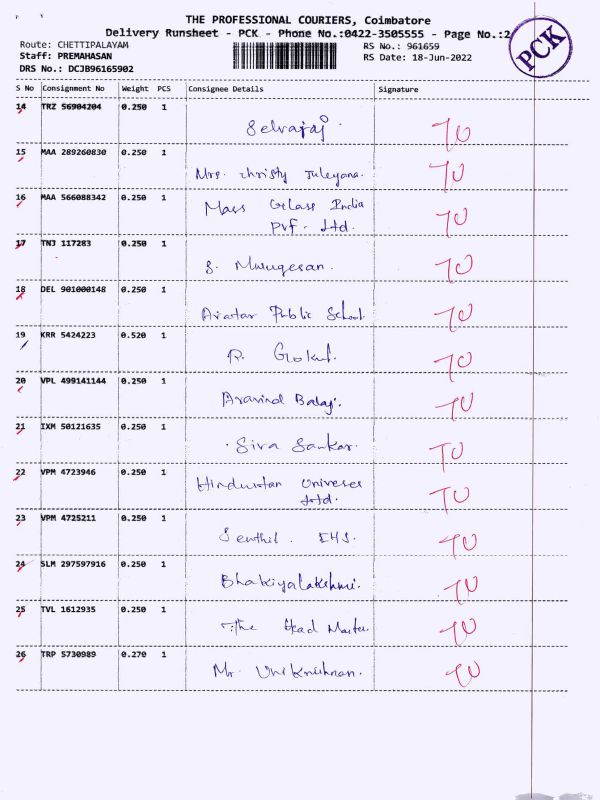 THE PROFESSIONAL COURIERS, Coimbatore
Delivery Runsheet - PCK - Phone No.:0422-3505555 - Page No.:2
PCK
Route: CHETTIPALAYAM
RS No.: 961659
Staff: PREMAHASAN
RS Date: 18-Jun-2022
DRS No.: DCJB96165902
S No Consignment No Weight PCS Consignee Details Signature
14 TRZ 56904204 0.250 1
Selvaraj. TO
15 MAA 289260830 0.250 1
Mrs. Christy Juleyana. TO
16 MAA 566088342 0.250 1
Mass Glass India
Pvt. Ltd. TO
17 TNJ 117283 0.250 1
S. Murugesan. TO
18 DEL 901000148 0.250 1
Avatar Public School. TO
19 KRR 5424223 0.520 1
R. Gokul. TO
20 VPL 499141144 0.250 1
Aravind Balaji. TO
21 IXM 50121635 0.250 1
Siva Sankar. TO
22 VPM 4723946 0.250 1
Hindustan
Ltd. TO
23 VPM 4725211 0.250 1
Senthil. TO
24 SLM 297597916 0.250 1
Bhakiyalakshmi. TO
25 TVL 1612935 0.250 1
The Head Master. TO
26 TRP 5730989 0.270 1
Mr. Unikrishnan. TO